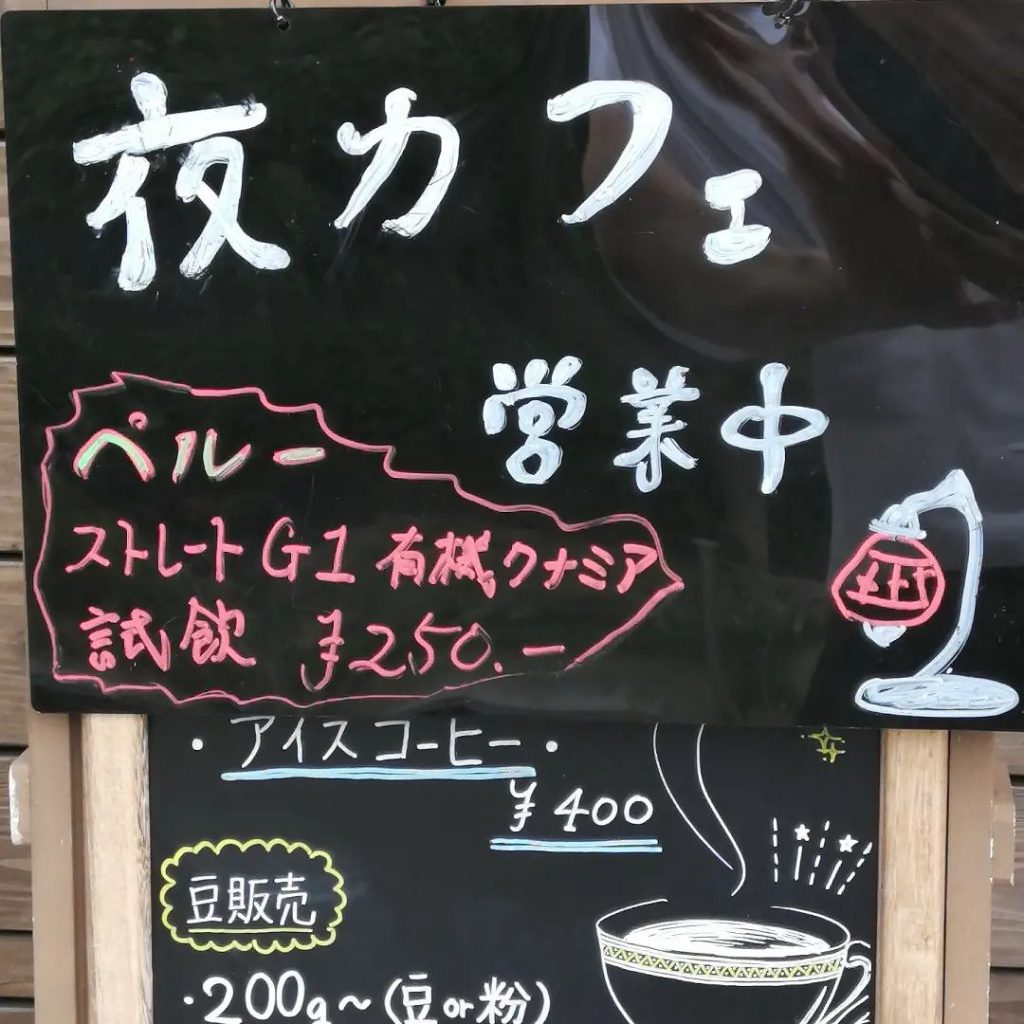 夜カフェ
営業中
ペルー
ストレートG1 有機クナミア
試飲 ¥250.-
・アイスコーヒー・
¥400
豆販売
・200g～(豆or粉)